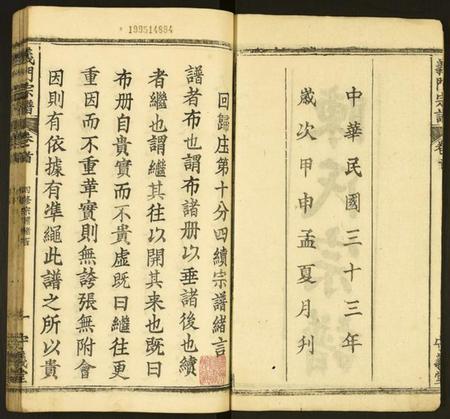 義門宗譜
卷首
中華民國三十三年
歲次甲申孟夏月刊
199514894
回歸庄第十分四續宗譜緒言
譜者布也謂布諸册以垂諸後也續
者繼也謂繼其往以開其來也既曰
布册自貴實而不貴虛既曰繼往更
重因而不重華實則無誇張無附會
因則有依據有準繩此譜之所以貴
義門宗譜
卷首